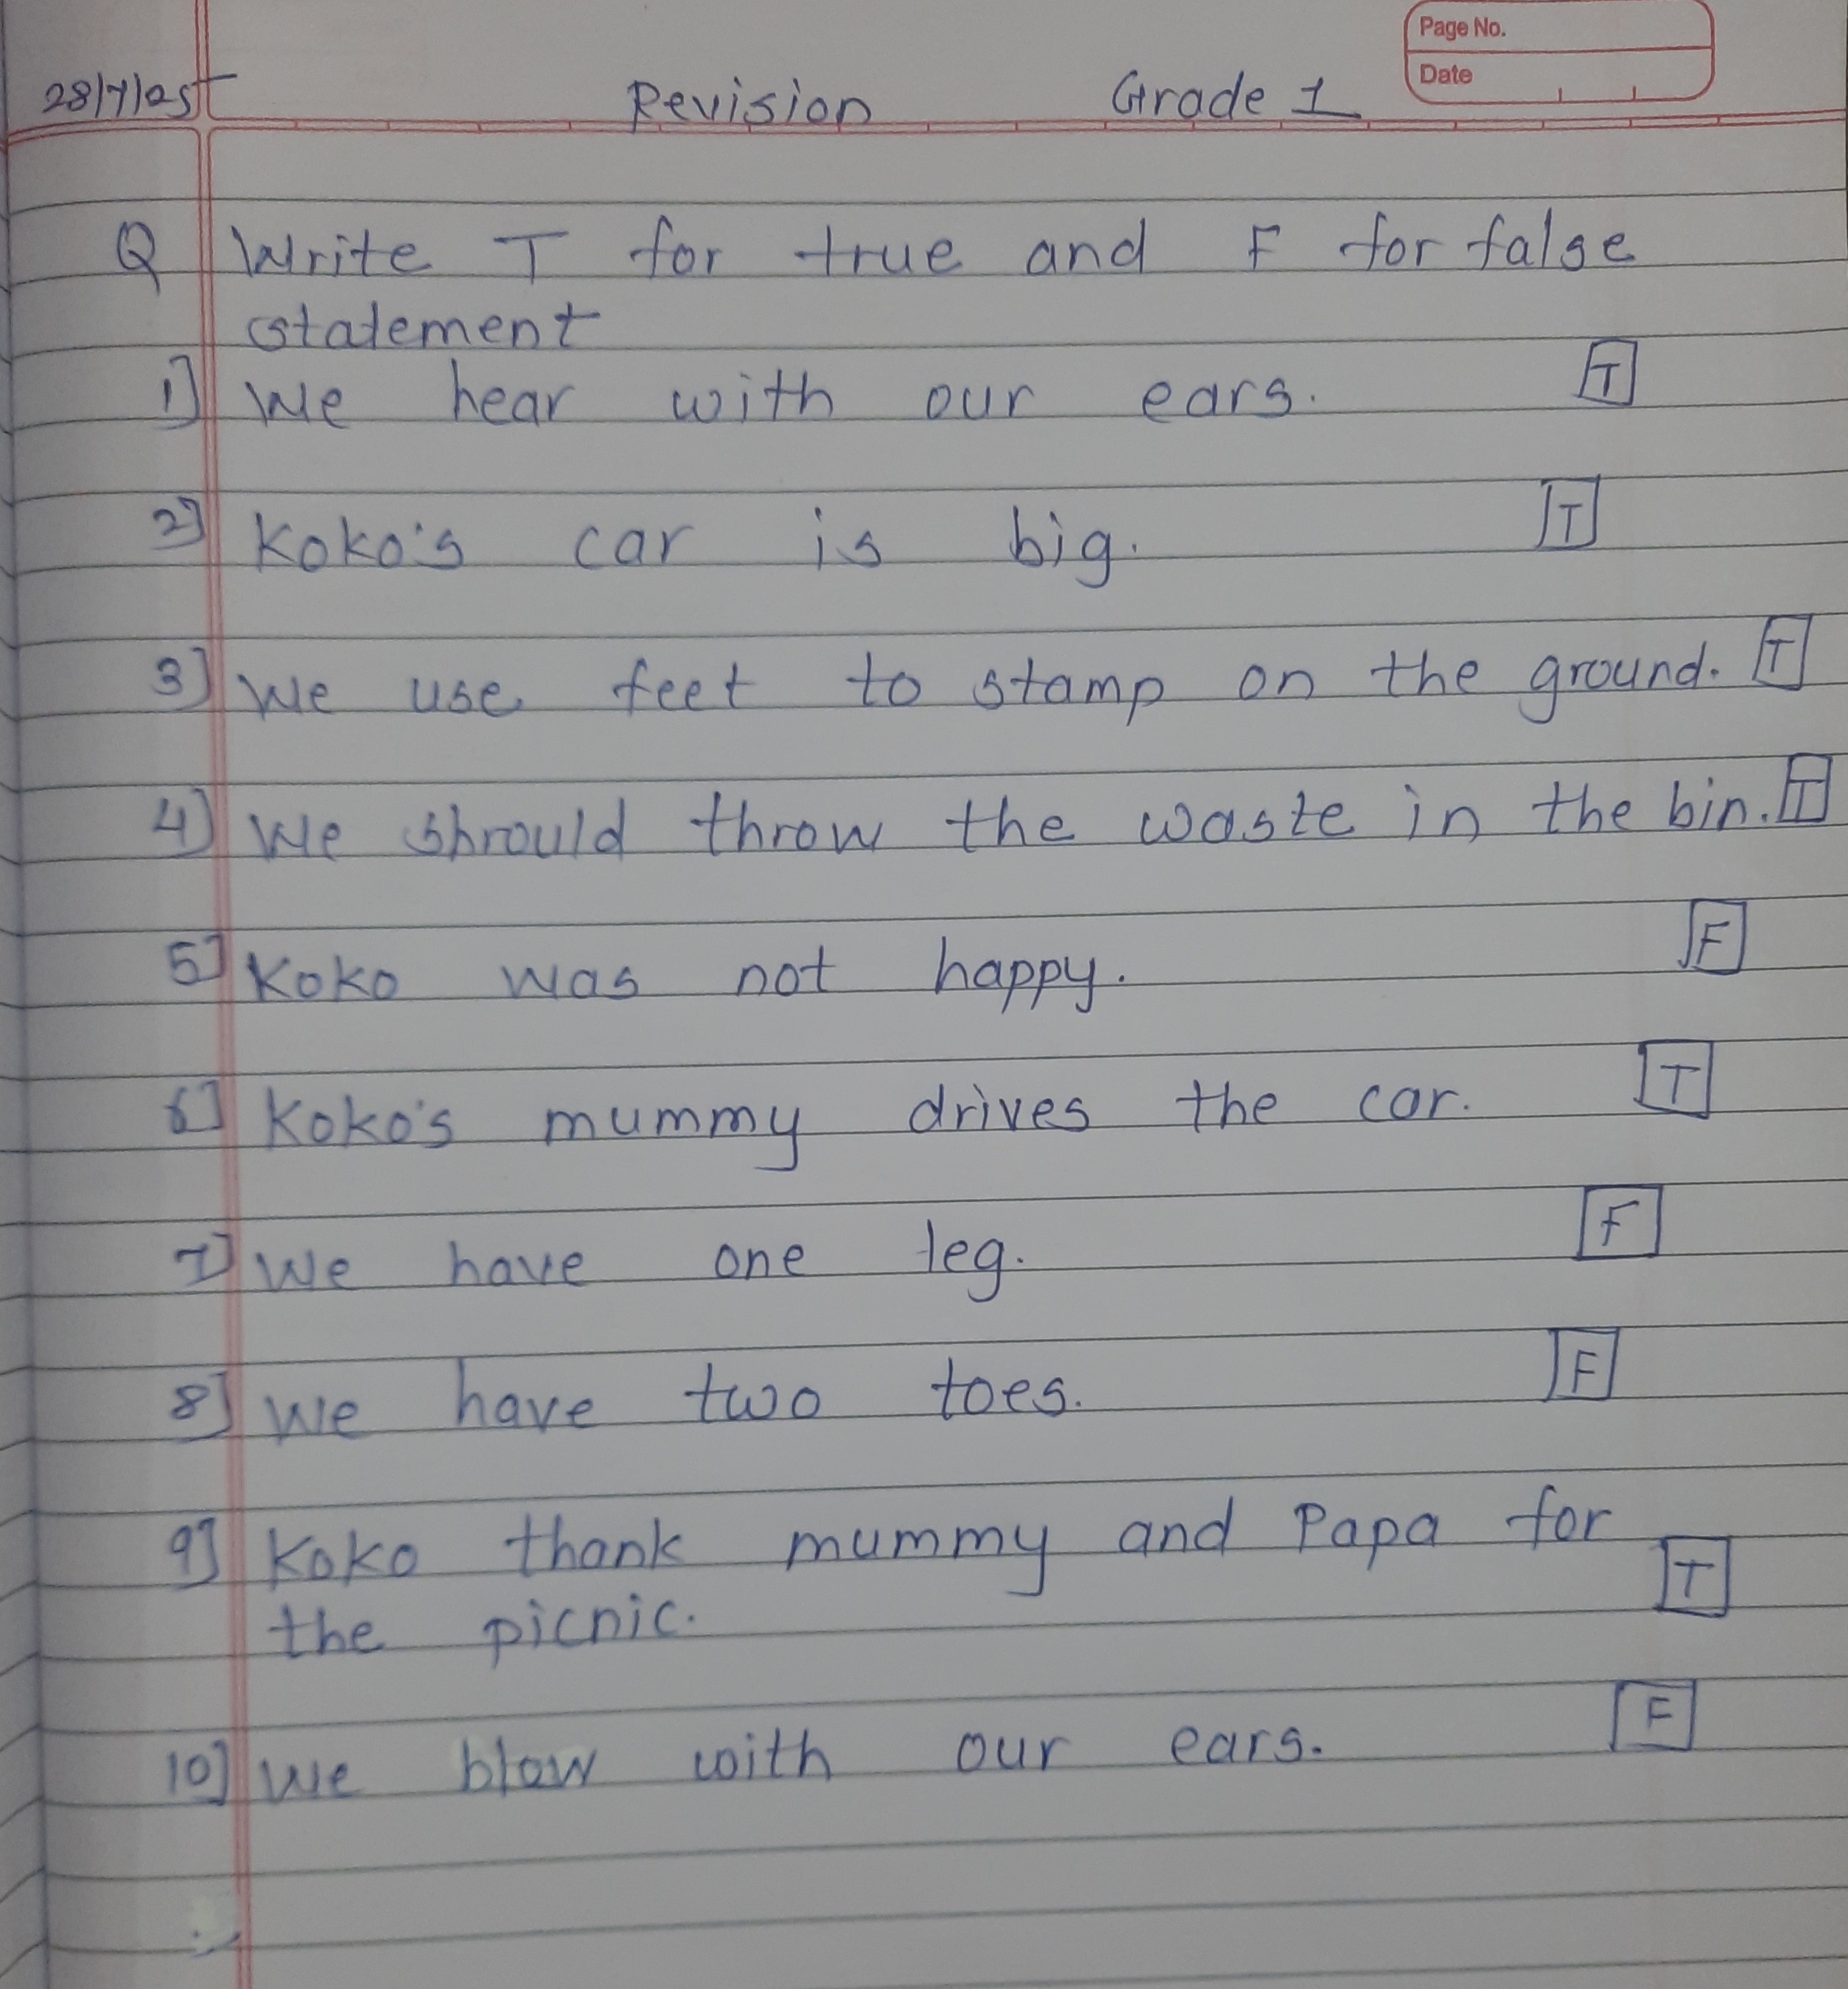 Page No.
Date
28/7/25 Revision Grade 1
Q Write T for true and F for false
statement
1] We hear with our ears. T
2] Koko's car is big. T
3] We use feet to stamp on the ground. T
4] We should throw the waste in the bin. T
5] Koko was not happy. F
6] Koko's mummy drives the car. T
7] We have one leg. F
8] We have two toes. F
9] Koko thank mummy and Papa for
the picnic. T
10] We blow with our ears. F